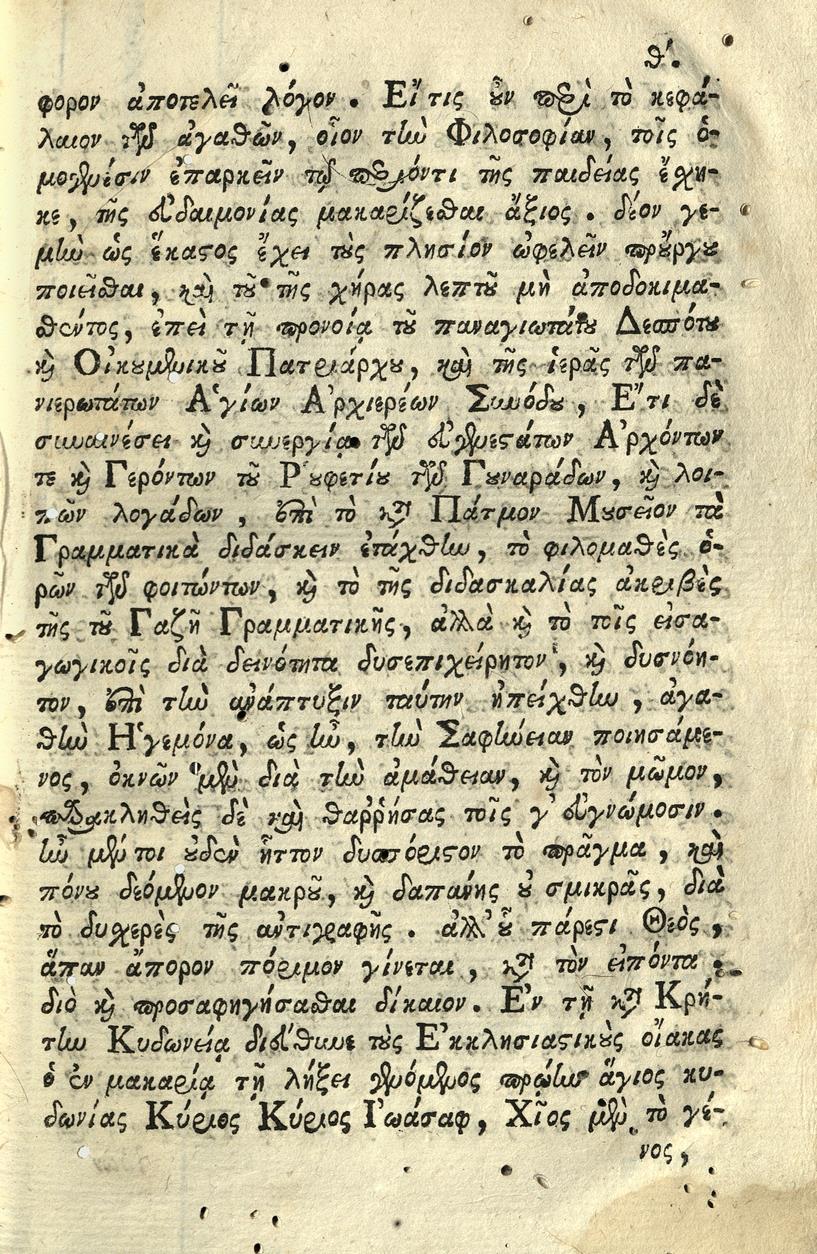 θ΄.
φορον ἀποτελεῖ λόγον. Εἴ τις ὖν περὶ τὸ κεφά-
λαιον τῶν ἀγαθῶν, οἷον τὴν Φιλοσοφίαν, τοῖς ὁ-
μογενέσιν ἐπαρκεῖν τῷ πρέποντι τῆς παιδείας ἔχη-
κε, τῆς εὐδαιμονίας μακαρίζεσθαι ἄξιος. δέον γε-
μὴν ὡς ἕκαστος ἔχει τοὺς πλησίον ὠφελεῖν προὔργου
ποιεῖσθαι, καὶ τοῦ τῆς χήρας λεπτοῦ μὴ ἀποδοκιμα-
σθέντος, ἐπεὶ τῇ προνοίᾳ τοῦ παναγιωτάτου Δεσπότου
καὶ Οἰκουμενικοῦ Πατριάρχου, καὶ τῆς ἱερᾶς τῶν πα-
νιερωτάτων Ἁγίων Ἀρχιερέων Συνόδου, Ἔτι δὲ
συναινέσει καὶ συνεργίᾳ τῶν εὐγενεστάτων Ἀρχόντων
τε καὶ Γερόντων τοῦ Ῥουφετίου τῶν Γουναράδων, καὶ λοι-
πῶν λογάδων, ἐπὶ τὸ κατὰ Πάτμον Μουσεῖον τὰ
Γραμματικὰ διδάσκειν ἐτάχθην, τὸ φιλομαθὲς ὁ-
ρῶν τῶν φοιτώντων, καὶ τὸ τῆς διδασκαλίας ἀκριβὲς
τῆς τοῦ Γαζῆ Γραμματικῆς, ἀλλὰ καὶ τὸ τοῖς εἰσα-
γωγικοῖς διὰ δεινότητα δυσεπιχείρητον, καὶ δυσνόη-
τον, ἐπὶ τὴν ἀνάπτυξιν ταύτην ἠπείχθην, ἀγα-
θὴν Ἡγεμόνα, ὡς ἦν, τὴν Σαφήνειαν ποιησάμε-
νος, ὀκνῶν μὲν διὰ τὴν ἀμάθειαν, καὶ τὸν μῶμον,
παρακληθεὶς δὲ καὶ θαῤῥήσας τοῖς γ᾽ εὐγνώμοσιν.
ἦν μέν τοι οὐδὲν ἧττον δυσπόριστον τὸ πρᾶγμα, καὶ
πόνου δεόμενον μακροῦ, καὶ δαπάνης οὐ σμικρᾶς, διὰ
τὸ δυχερὲς τῆς ἀντιγραφῆς. ἀλλ᾽ οὗ πάρεστι Θεὸς,
ἅπαν ἄπορον πόριμον γίνεται, κατὰ τὸν εἰπόντα.
διὸ καὶ προσαφηγήσασθαι δίκαιον. Ἐν τῇ κατὰ Κρή-
την Κυδωνείᾳ διεύθυνε τοὺς Ἐκκλησιαστικοὺς οἴακας
ὁ ἐν μακαρίᾳ τῇ λήξει γενόμενος πρῴην ἅγιος κυ-
δωνίας Κύριος Κύριος Ἰωάσαφ, Χῖος μὲν τὸ γέ-
νος,